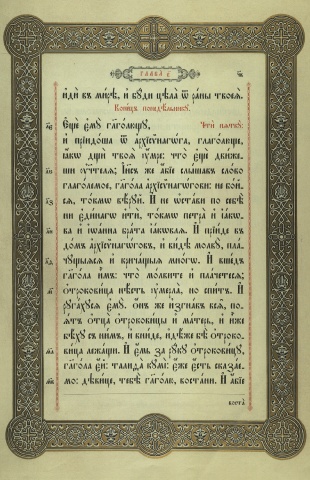 ГЛАВА є҃
идѝ въ ми́рѣ, и҆ бꙋ́ди цѣла̀ ѿ ра́ны твоеѧ̀.
Коне́цъ понедѣ́льникꙋ.
Є҆щѐ є҆мꙋ̀ гл҃го́лющꙋ, Чтѝ пѧткꙋ̀:
и҆ прїидо́ша ѿ а҆рхїсѷнагѡ́га, глаго́люще,
ꙗ҆́кѡ дщѝ твоѧ̀ ᲂу҆́мре: что̀ є҆щѐ дви́же-
ши ᲂу҆чт҃елѧ; І҆и҃съ же а҆́бїе слы́шавъ сло́во
глаго́лемое, глаго́ла а҆рхїсѷнагѡ́гови: не бо́й-
сѧ, то́кмѡ вѣ́рꙋй. И҆ не ѡ҆ста́ви по себѣ̀
ни є҆ди́наго и҆тѝ, то́кмѡ петра̀ и҆ і҆а́кѡ-
ва и҆ і҆ѡа́нна бра́та і҆а́кѡвлѧ. И҆ прїи́де въ
до́мъ а҆рхїсѷнагѡ́говъ, и҆ ви́дѣ молвꙋ̀, пла́-
чꙋщыѧсѧ и҆ крича́щыѧ мно́гѡ. И҆ вше́дъ
глаго́ла и҆̀мъ: что̀ мо́лвите и҆ пла́четесѧ;
ѻ҆трокови́ца нѣ́сть ᲂу҆мерла̀, но спи́тъ. И҆
рꙋга́хꙋсѧ є҆мꙋ̀. Ѻ҆́нъ же и҆згна́въ всѧ̑, по-
ѧ́тъ ѻ҆тца̀ ѻ҆трокови́цы и҆ ма́терь, и҆ и҆̀же
бѣ́хꙋ съ ни́мъ, и҆ вни́де, и҆дѣ́же бѣ̀ ѻ҆троко-
ви́ца лежа́щи. И҆ є҆́мь за рꙋ́кꙋ ѻ҆трокови́цꙋ,
глаго́ла є҆́й: талїѳа̀ кꙋ́ми: є҆́же є҆́сть ска́зае-
мо: дѣви́це, тебѣ̀ глаго́лю, воста́ни. И҆ а҆́бїе
воста̀